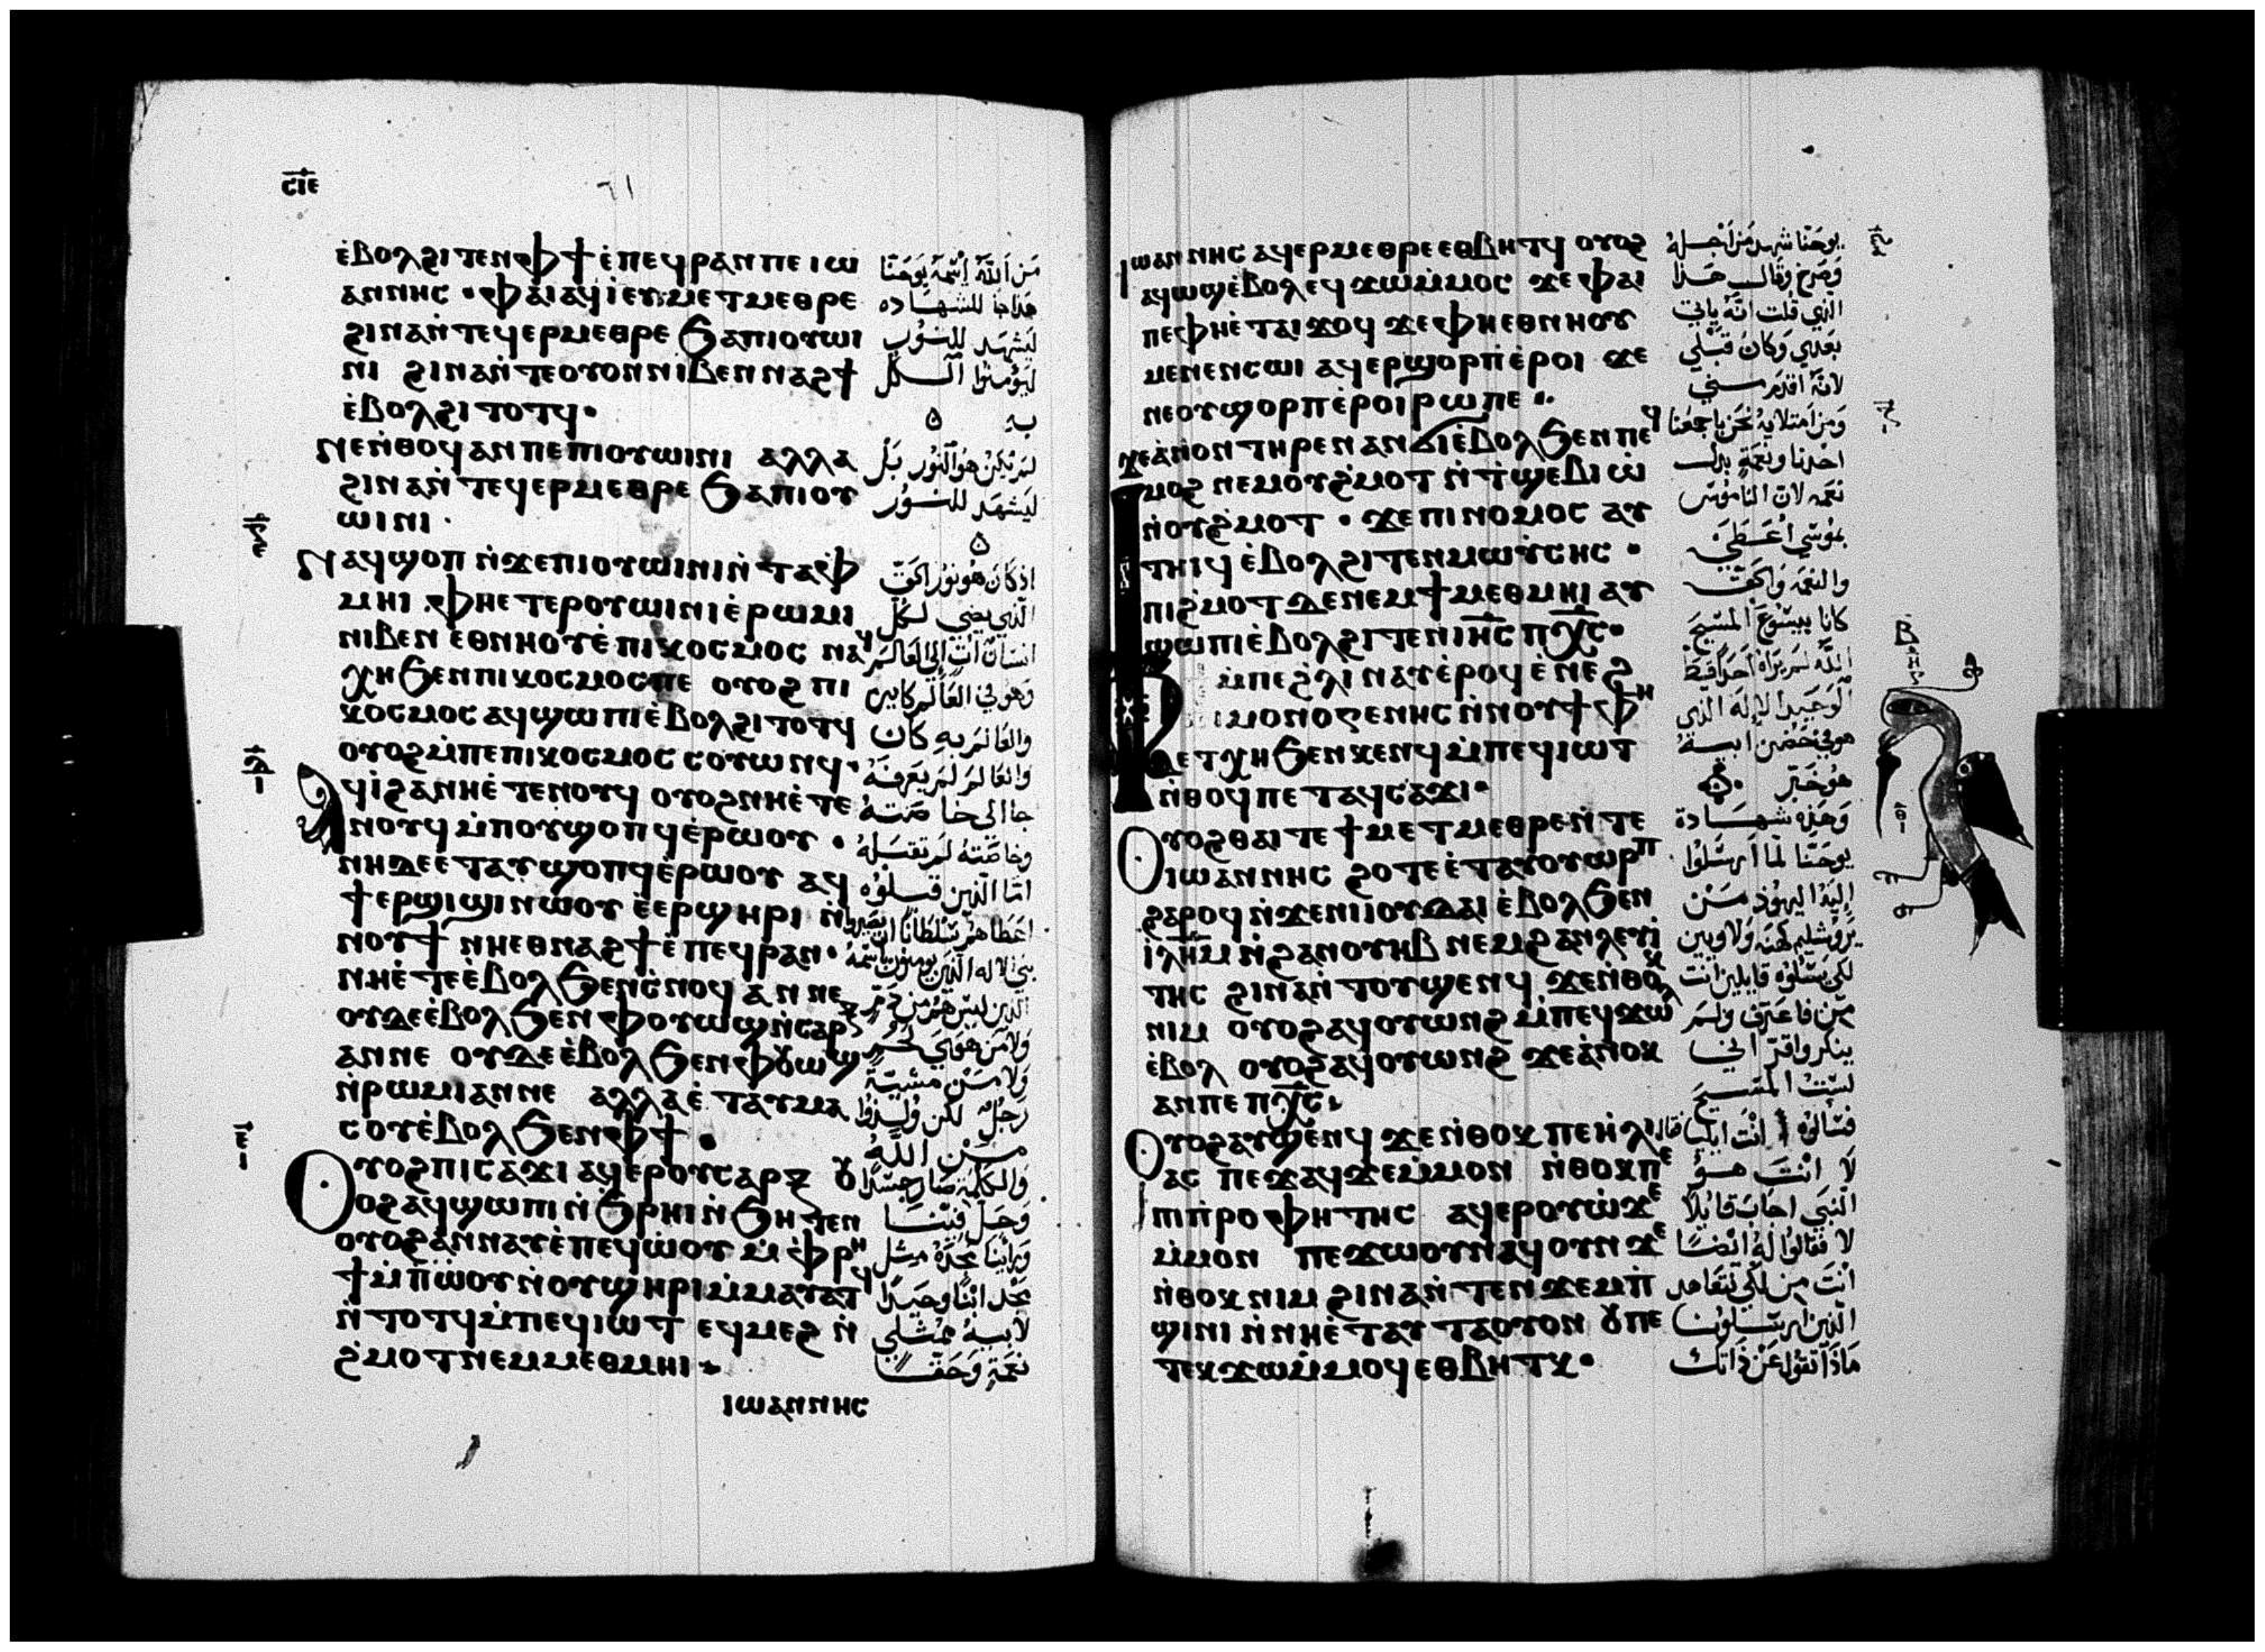 ⲥⲓⲉ
ⲉ̀ⲃⲟⲗϩⲓⲧⲉⲛⲫϯ ⲉ̀ⲡⲉϥⲣⲁⲛⲡⲉ ⲓⲱ
ⲁⲛⲛⲏⲥ · ⲫⲁⲓⲁϥⲓ̀ⲉⲩⲙⲉⲧⲙⲉⲑⲣⲉ
ϩⲓⲛⲁⲛ̀ⲧⲉϥⲉⲣⲙⲉⲑⲣⲉ ϧⲁⲡⲓⲟⲩⲱⲓ
ⲛⲓ ϩⲓⲛⲁⲛ̀ⲧⲉⲟⲩⲟⲛⲛⲓⲃⲉⲛⲛⲁϩϯ
ⲉ̀ⲃⲟⲗϩⲓⲧⲟⲧϥ·
ⲛⲉⲛ̀ⲑⲟϥⲁⲛⲡⲉⲡⲓⲟⲩⲱⲓⲛⲓ ⲁⲗⲗⲁ
ϩⲓⲛⲁⲛ̀ⲧⲉϥⲉⲣⲙⲉⲑⲣⲉ ϧⲁⲡⲓⲟⲩ
ⲱⲓⲛⲓ·
ⲛⲁϥϣⲟⲡ ⲛ̀ϫⲉⲡⲓⲟⲩⲱⲓⲛⲓⲛ̀ⲧⲁⲫ̀
ⲙⲏⲓ ·ⲫⲏⲉⲧⲉⲣⲟⲩⲱⲓⲛⲓⲉ̀ⲣⲱⲙⲓ
ⲛⲓⲃⲉⲛ ⲉⲑⲛⲏⲟⲩⲉ̀ⲡⲓⲕⲟⲥⲙⲟⲥ ⲛⲁϥ
ⲭⲏϧⲉⲛⲡⲓⲕⲟⲥⲙⲟⲥⲡⲉ ⲟⲩⲟϩ ⲡⲓ
ⲕⲟⲥⲙⲟⲥ ⲁϥϣⲱⲡⲓⲉ̀ⲃⲟⲗϩⲓⲧⲟⲧϥ
ⲟⲩⲟϩⲙ̀ⲡⲉⲡⲓⲕⲟⲥⲙⲟⲥ ⲥⲟⲩⲱⲛϥ·
ⲁϥⲓ̀ϩⲁⲛⲏⲉ̀ⲧⲉⲛⲟⲩϥ ⲟⲩⲟϩⲛⲏⲉ̀ⲧⲉ
ⲛⲟⲩϥ ⲙ̀ⲡⲟⲩϣⲟⲡϥⲉ̀ⲣⲱⲟⲩ ·
ⲛⲏⲇⲉⲉⲧⲁⲩϣⲟⲡϥⲉ̀ⲣⲱⲟⲩ ⲁϥ
ϯⲉⲣϣⲓϣⲓⲛ̀ⲱⲟⲩ ⲉ̀ⲉⲣϣⲏⲣⲓ ⲛ̀
ⲛⲟⲩϯ ⲛⲏⲉⲑⲛⲁϩϯⲉ̀ⲡⲉϥⲣⲁⲛ·
ⲛⲏⲉ̀ⲧⲉⲉ̀ⲃⲟⲗϧⲉⲛⲥ̀ⲛⲟϥ ⲁⲛⲛⲉ
ⲟⲩⲇⲉⲉ̀ⲃⲟⲗϧⲉⲛ ⲫⲟⲩⲱϣⲛ̀ⲥⲁⲣⲝ
ⲁⲛⲛⲉ ⲟⲩⲇⲉⲉ̀ⲃⲟⲗϧⲉⲛⲫⲟⲩⲱϣ
ⲛ̀ⲣⲱⲙⲓⲁⲛⲛⲉ ⲁⲗⲗⲁⲉ̀ⲧⲁⲩⲙⲁ
ⲥⲟⲩⲉ̀ⲃⲟⲗϧⲉⲛⲫϯ·
ⲟⲩⲟϩⲡⲓⲥⲁϫⲓ ⲁϥⲉⲣⲟⲩⲥⲁⲣⲝ ⲟⲩ
ⲟϩⲁϥϣⲱⲡⲓ ⲛ̀ϧⲣⲏⲓⲛ̀ϧⲏⲧⲉⲛ
ⲟⲩⲟϩⲁⲛⲛⲁⲩⲉ̀ⲡⲉϥⲱ̀ⲟⲩ ⲙ̀ⲫⲣⲏ
ϯⲙ̀ⲡⲱ̀ⲟⲩⲛ̀ⲟⲩϣⲏⲣⲓⲙ̀ⲙⲁⲩⲁⲧϥ
ⲛ̀ⲧⲟⲧϥⲙ̀ⲡⲉϥⲓⲱⲧ ⲉϥⲙⲉϩ ⲛ̀
ϩ̀ⲙⲟⲧⲛⲉⲙⲙⲉⲑⲙⲏⲓ
ⲓⲱⲁⲛⲛⲏⲥ
من الله اسمه يوحنا
هذا جا للشهاده
ليشهد للنور
ليومنوا الكل
به
لم يكن هو النور بل
ليشهد للنور
اذ كان هو نور الحق
الذي يضي لكل
انسان ات الى العالم
وهو في العالم كاين
والعالم به كان
والعالم لم يعرفه
جا الى خاصته
وخاصته لم تقبله
اما الذين قبلوه
اعطاهم سلطانا ان يصيروا
بني الاله الذين يومنون باسمه
الذين ليس هم من دم
ولا من هوى لحم
ولا من مشية
رجل لكن ولدوا
من الله
والكلمة صار جسدا
وحل فينا
وراينا مجده مثل
مجد ابنا وحيدا
لابيه ممتلي
نعمة وحقا
ⲓⲱⲁⲛⲛⲏⲥ ⲁϥⲉⲣⲙⲉⲑⲣⲉ ⲉⲑⲃⲏⲧϥ ⲟⲩⲟϩ
ⲁϥⲱϣⲉ̀ⲃⲟⲗ ⲉϥϫⲱⲙ̀ⲙⲟⲥ ϫⲉ ⲫⲁⲓ
ⲡⲉⲫⲏⲉ̀ⲧⲁⲓϫⲟϥ ϫⲉⲫⲏⲉⲑⲛⲏⲟⲩ
ⲙⲉⲛⲉⲛⲥⲱⲓ ⲁϥⲉⲣϣⲟⲣⲡⲉ̀ⲣⲟⲓ ϫⲉ
ⲛⲉⲟⲩϣⲟⲣⲡⲉ̀ⲣⲟⲓⲣⲱⲡⲉ ·
ϫⲉⲁ̀ⲛⲟⲛⲧⲏⲣⲉⲛ ⲁⲛϭⲓⲉ̀ⲃⲟⲗϧⲉⲛⲡⲉϥ
ⲙⲟϩ ⲛⲉⲙⲟⲩϩ̀ⲙⲟⲧ ⲛ̀ⲧ̀ϣⲉⲃⲓⲱ̀
ⲛ̀ⲟⲩϩ̀ⲙⲟⲧ · ϫⲉⲡⲓⲛⲟⲙⲟⲥ ⲁⲩ
ⲧⲏⲓϥ ⲉ̀ⲃⲟⲗϩⲓⲧⲉⲛⲙⲱⲩ̀ⲥⲏⲥ ·
ⲡⲓϩ̀ⲙⲟⲧⲇⲉⲛⲉⲙϯⲙⲉⲑⲙⲏⲓ ⲁⲩ
ϣⲱⲡⲓⲉ̀ⲃⲟⲗϩⲓⲧⲉⲛ ⲓⲏⲥ ⲡⲭⲥ·
ⲫϯ ⲙ̀ⲡⲉϩ̀ⲗⲓ ⲛⲁⲩⲉ̀ⲣⲟϥ ⲉ̀ⲛⲉϩ
ⲡⲓⲙⲟⲛⲟⲅⲉⲛⲏⲥ ⲛ̀ⲛⲟⲩϯ ⲫⲏ
ⲉⲧⲭⲏ ϧⲉⲛⲕⲉⲛϥ ⲙ̀ⲡⲉϥⲓⲱⲧ
ⲛ̀ⲑⲟϥⲡⲉⲧⲁϥⲥⲁϫⲓ·
ⲟⲩⲟϩⲑⲁⲓⲧⲉϯⲙⲉⲧⲙⲉⲑⲣⲉⲛ̀ⲧⲉ
ⲓⲱⲁⲛⲛⲏⲥ ϩⲟⲧⲉⲉ̀ⲧⲁⲩⲟⲩⲱⲣⲡ
ϩⲁⲣⲟϥ ⲛ̀ϫⲉⲛⲓⲓⲟⲩⲇⲁⲓ ⲉ̀ⲃⲟⲗϧⲉⲛ
ⲓⲗⲏⲙ ⲛ̀ϩⲁⲛⲟⲩⲏⲃ ⲛⲉⲙϩⲁⲛⲗⲉⲩⲓ̀
ⲧⲏⲥ ϩⲓⲛⲁⲛ̀ⲧⲟⲩϣⲉⲛϥ ϫⲉⲛ̀ⲑⲟⲕ
ⲛⲓⲙ ⲟⲩⲟϩⲁϥⲟⲩⲱⲛϩ ⲙ̀ⲡⲉϥϫⲱⲗ
ⲉ̀ⲃⲟⲗ ⲟⲩⲟϩⲁϥⲟⲩⲱⲛϩ ϫⲉⲁ̀ⲛⲟⲕ
ⲁⲛⲡⲉ ⲡⲭⲥ·
ⲟⲩⲟϩⲁⲩϣⲉⲛϥ ϫⲉⲛ̀ⲑⲟⲕ ⲡⲉⲏ̀ⲗⲓ
ⲁⲥ ⲡⲉϫⲁϥϫⲉⲙ̀ⲙⲟⲛ ⲛ̀ⲑⲟⲕⲡⲉ
ⲡⲓⲡ̀ⲣⲟⲫⲏⲧⲏⲥ ⲁϥⲉⲣⲟⲩⲱ̀ϫⲉ
ⲙ̀ⲙⲟⲛ ⲡⲉϫⲱⲟⲩⲛⲁϥ ⲟⲩⲛ ϫⲉ
ⲛ̀ⲑⲟⲕ ⲛⲓⲙ ϩⲓⲛⲁⲛ̀ⲧⲉⲛϫⲉⲙⲡ̀
ϣⲓⲛⲓ ⲛ̀ⲛⲏⲉ̀ⲧⲁⲩⲧⲁⲟⲩⲟⲛ ⲟⲩⲡⲉ
ⲧⲉⲕϫⲱⲙ̀ⲙⲟϥ ⲉⲑⲃⲏⲧⲕ·
يوحنا شهد من اجله
وصرخ وقال هذا
الذي قلت انه ياتي
بعدي وكان قبلي
لانه اقدم مني
ومن امتلايه نحن باجمعنا
اخذنا ونعمة بدل
نعمه لان الناموس
بموسى اعطي
والنعمه والحق
كانا بيسوع المسيح
الله لم يراه احد قط
الوحيد الاله الذي
هو في حضن ابيه
هو خبر
وهذه شهادة
يوحنا لما ارسلوا
اليه اليهود من
يروشليم كهنه ولاويين
لكي يسئلوه قايلين انت
من فاعترف ولم
ينكر واقر اني
لست المسيح
فسالوه انت ايليا قال
لا انت هو
النبي اجاب قايلا
لا فقالوا له ايضا
انت من لكي
الذين ارسلونا
ماذا تقول عن ذاتك